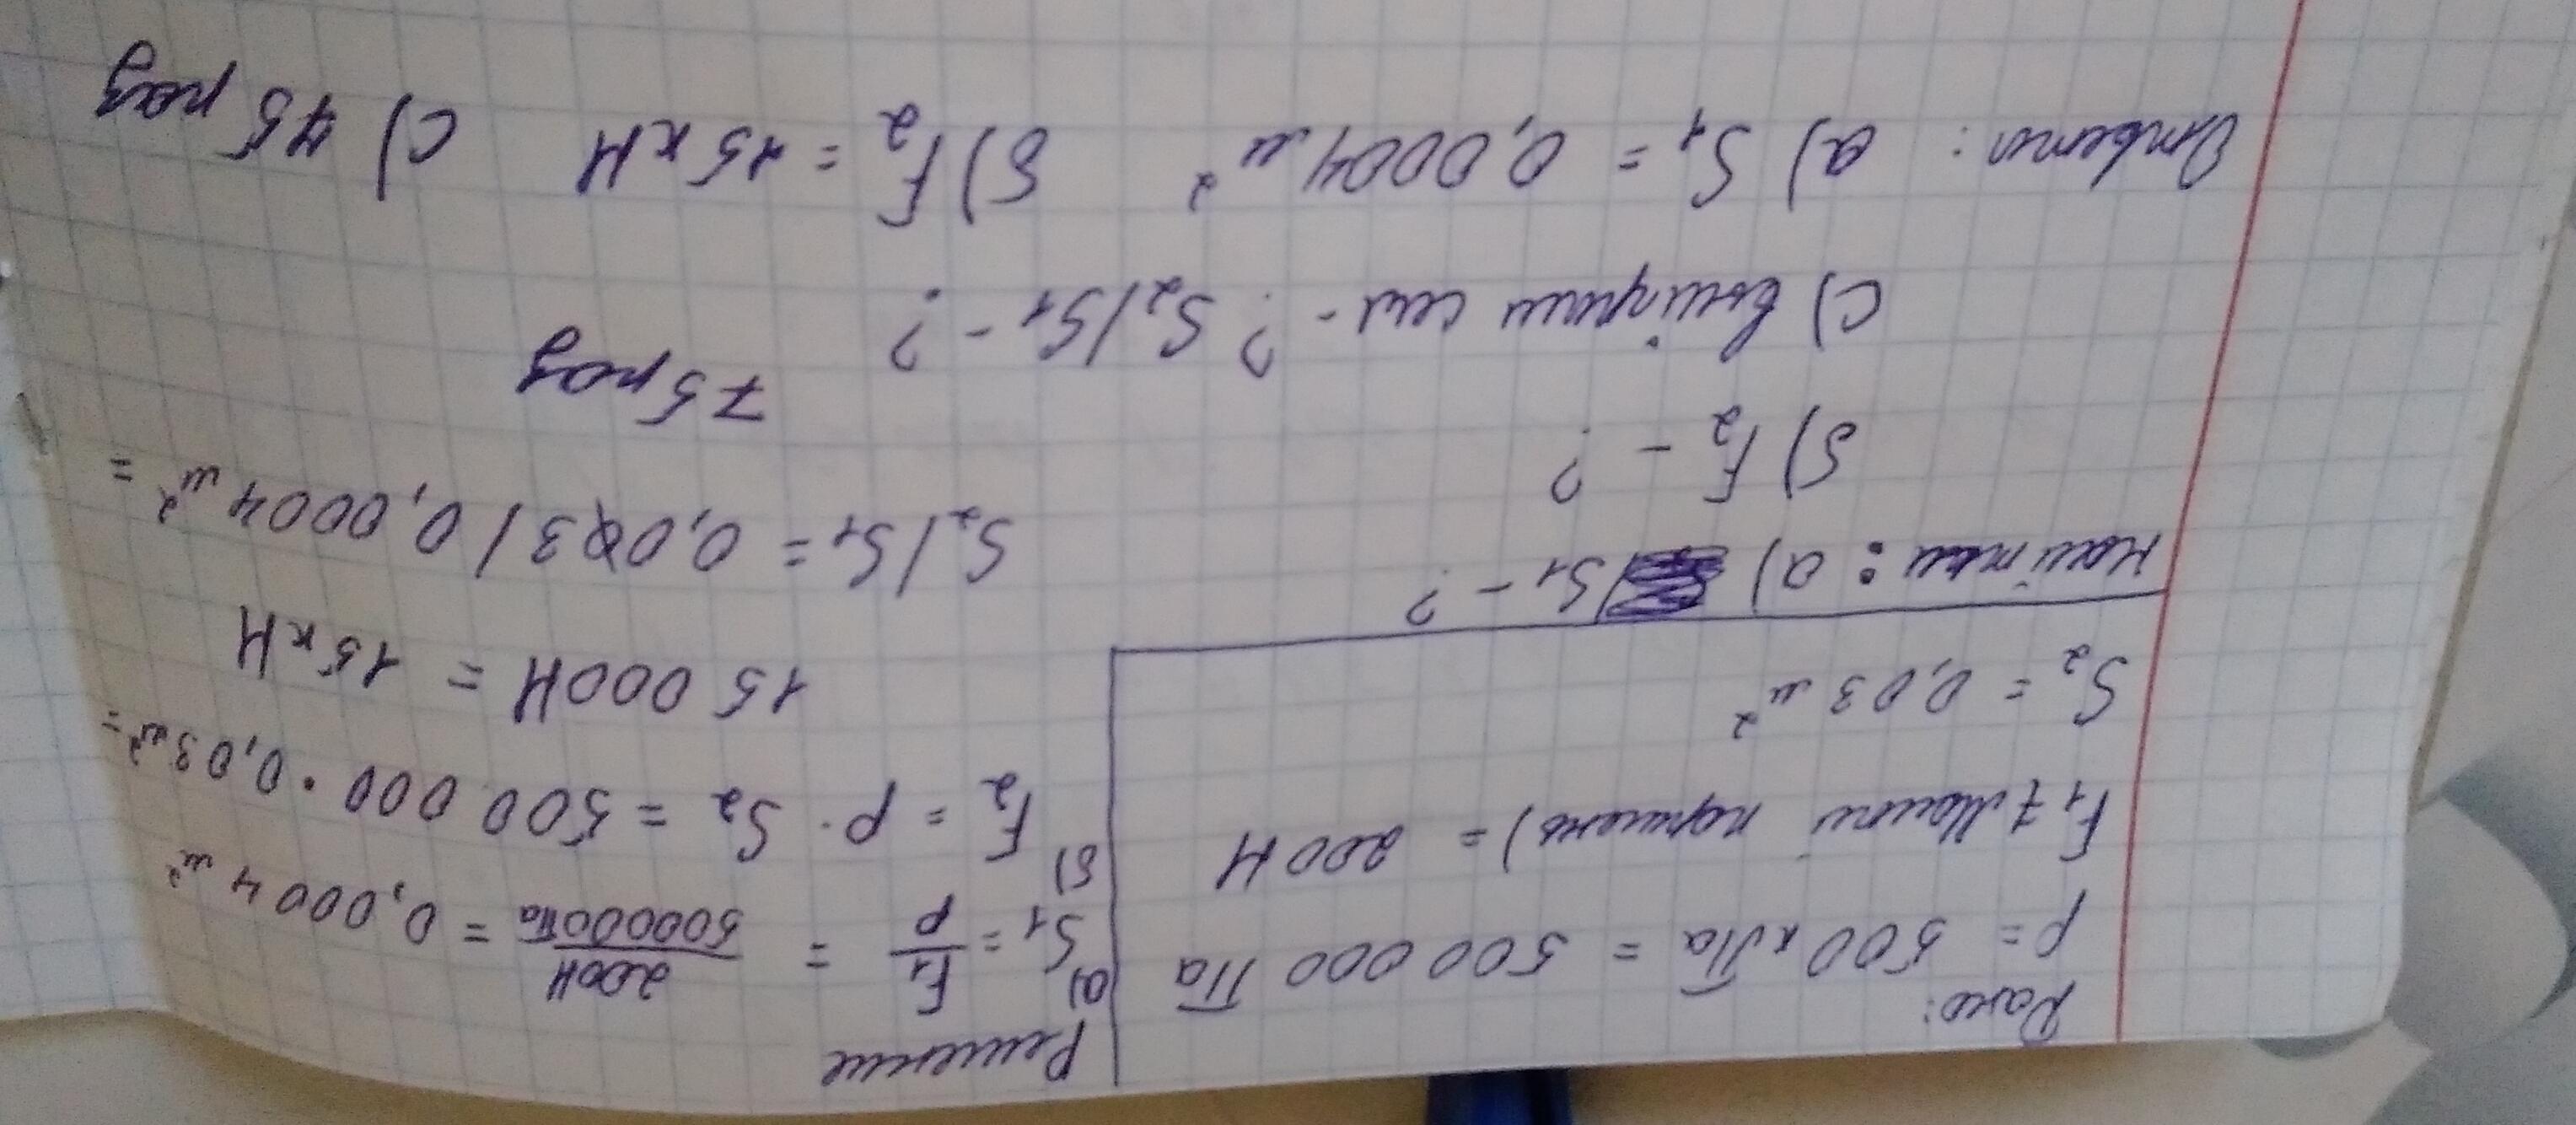 Дано:
p = 500 кПа = 500 000 Па
F₁ (Малый поршень) = 200 Н
S₂ = 0,03 м²
найти: а) S₁ - ?
б) F₂ - ?
с) выигрыш сил - ? S₂/S₁ - ?
Решение
а) S₁ = F₁/p = 200Н/500000Па = 0,0004 м²
б) F₂ = p · S₂ = 500 000 · 0,03 м² =
15 000Н = 15 кН
S₂/S₁ = 0,03 / 0,0004 м² =
75 раз
Ответ: а) S₁ = 0,0004 м² б) F₂ = 15 кН с) 75 раз